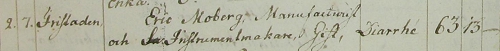 2. 7. Fristaden, Eric Moberg, Manufacturist
och Instrumentmakare, Gift, Diarrhé 63 13 —